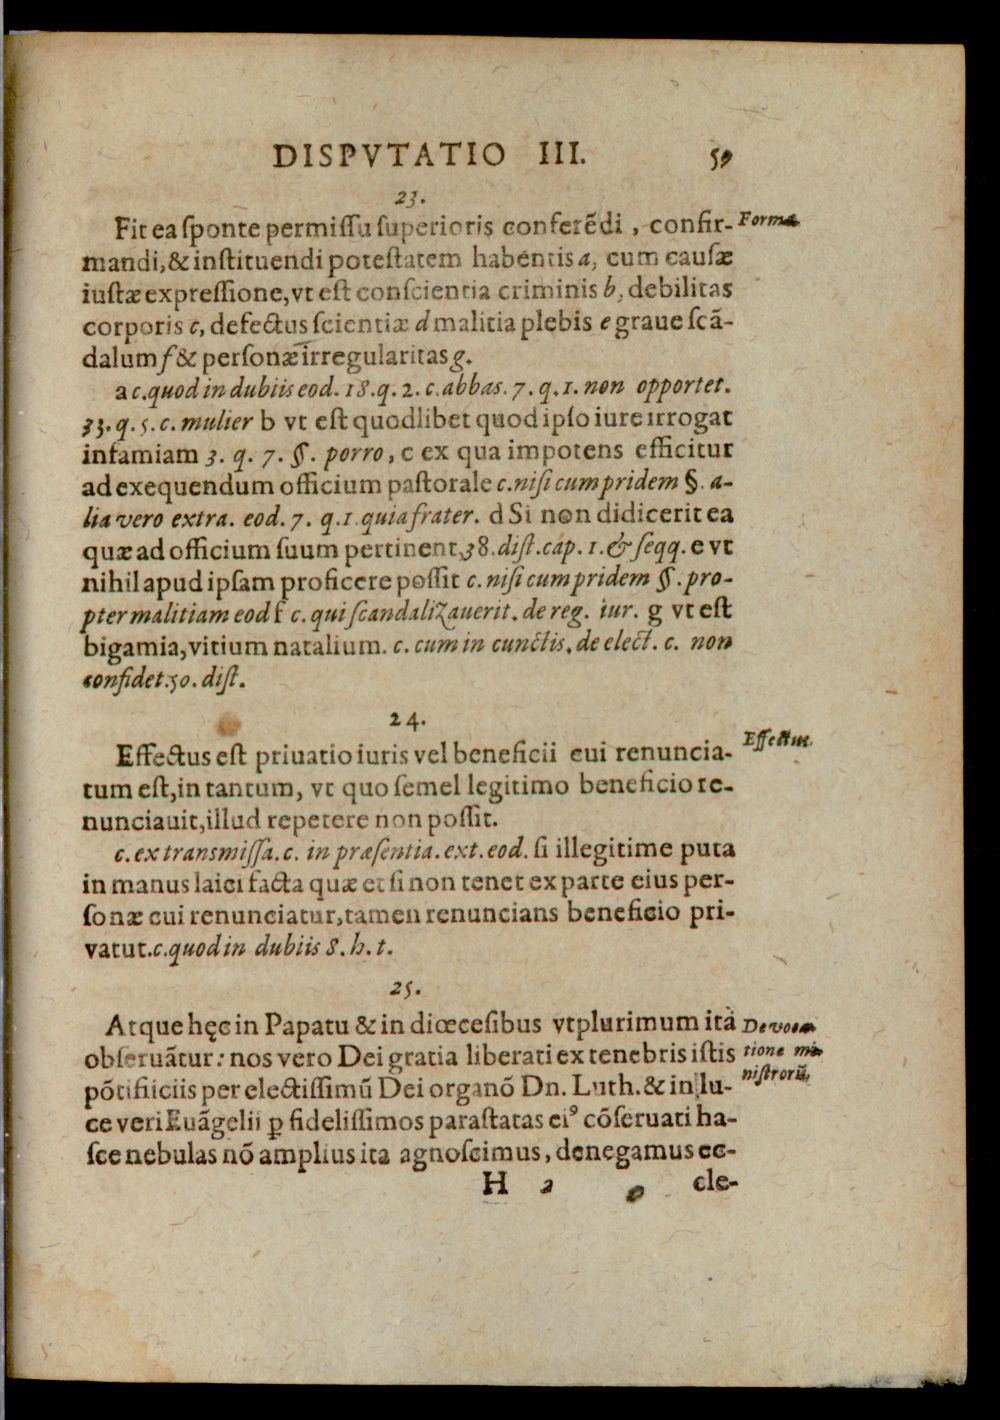 DISPVTATIO III. 59
23.
Fit ea sponte permissu superioris conferẽdi, confir- Forma
mandi, & instituendi potestatem habentis a, cum causæ
iustæ expressione, vt est conscientia criminis b, debilitas
corporis c, defectus scientiæ d malitia plebis e graue scã-
dalum f & personæ irregularitas g.
a c. quod in dubiis eod. 18. q. 2. c. abbas. 7. q. 1. non opportet.
33. q. 5. c. mulier b vt est quodlibet quod ipso iure irrogat
infamiam 3. q. 7. §. porro, c ex qua impotens efficitur
ad exequendum officium pastorale c. nisi cum pridem §. a-
lia vero extra. eod. 7. q. 1 quia frater. d Si non didicerit ea
quæ ad officium suum pertinent, 38. dist. cap. 1. & seqq. e vt
nihil apud ipsam proficere possit c. nisi cum pridem §. pro-
pter malitiam eod f c. qui scandalizauerit. de reg. iur. g vt est
bigamia, vitium natalium. c. cum in cunctis. de elect. c. non
confidet. 50. dist.
24.
Effectus est priuatio iuris vel beneficii cui renuncia- Effectus.
tum est, in tantum, vt quo semel legitimo beneficio re-
nunciauit, illud repetere non possit.
c. ex transmissa. c. in præsentia. ext. eod. si illegitime puta
in manus laici facta quæ et si non tenet ex parte eius per-
sonæ cui renunciatur, tamen renuncians beneficio pri-
vatut. c. quod in dubiis 8. h. t.
25.
Atque hęc in Papatu & in diœcesibus vtplurimum ità De voca
obseruãtur: nos vero Dei gratia liberati ex tenebris istis tione mi-
põtifiiciis per electissimũ Dei organõ Dn. Luth. & in lu- nistrorũ.
ce veri Euãgelii ꝑ fidelissimos parastatas eiꝰ cõseruati ha-
sce nebulas nõ amplius ita agnoscimus, denegamus ec-
H 2 cle-